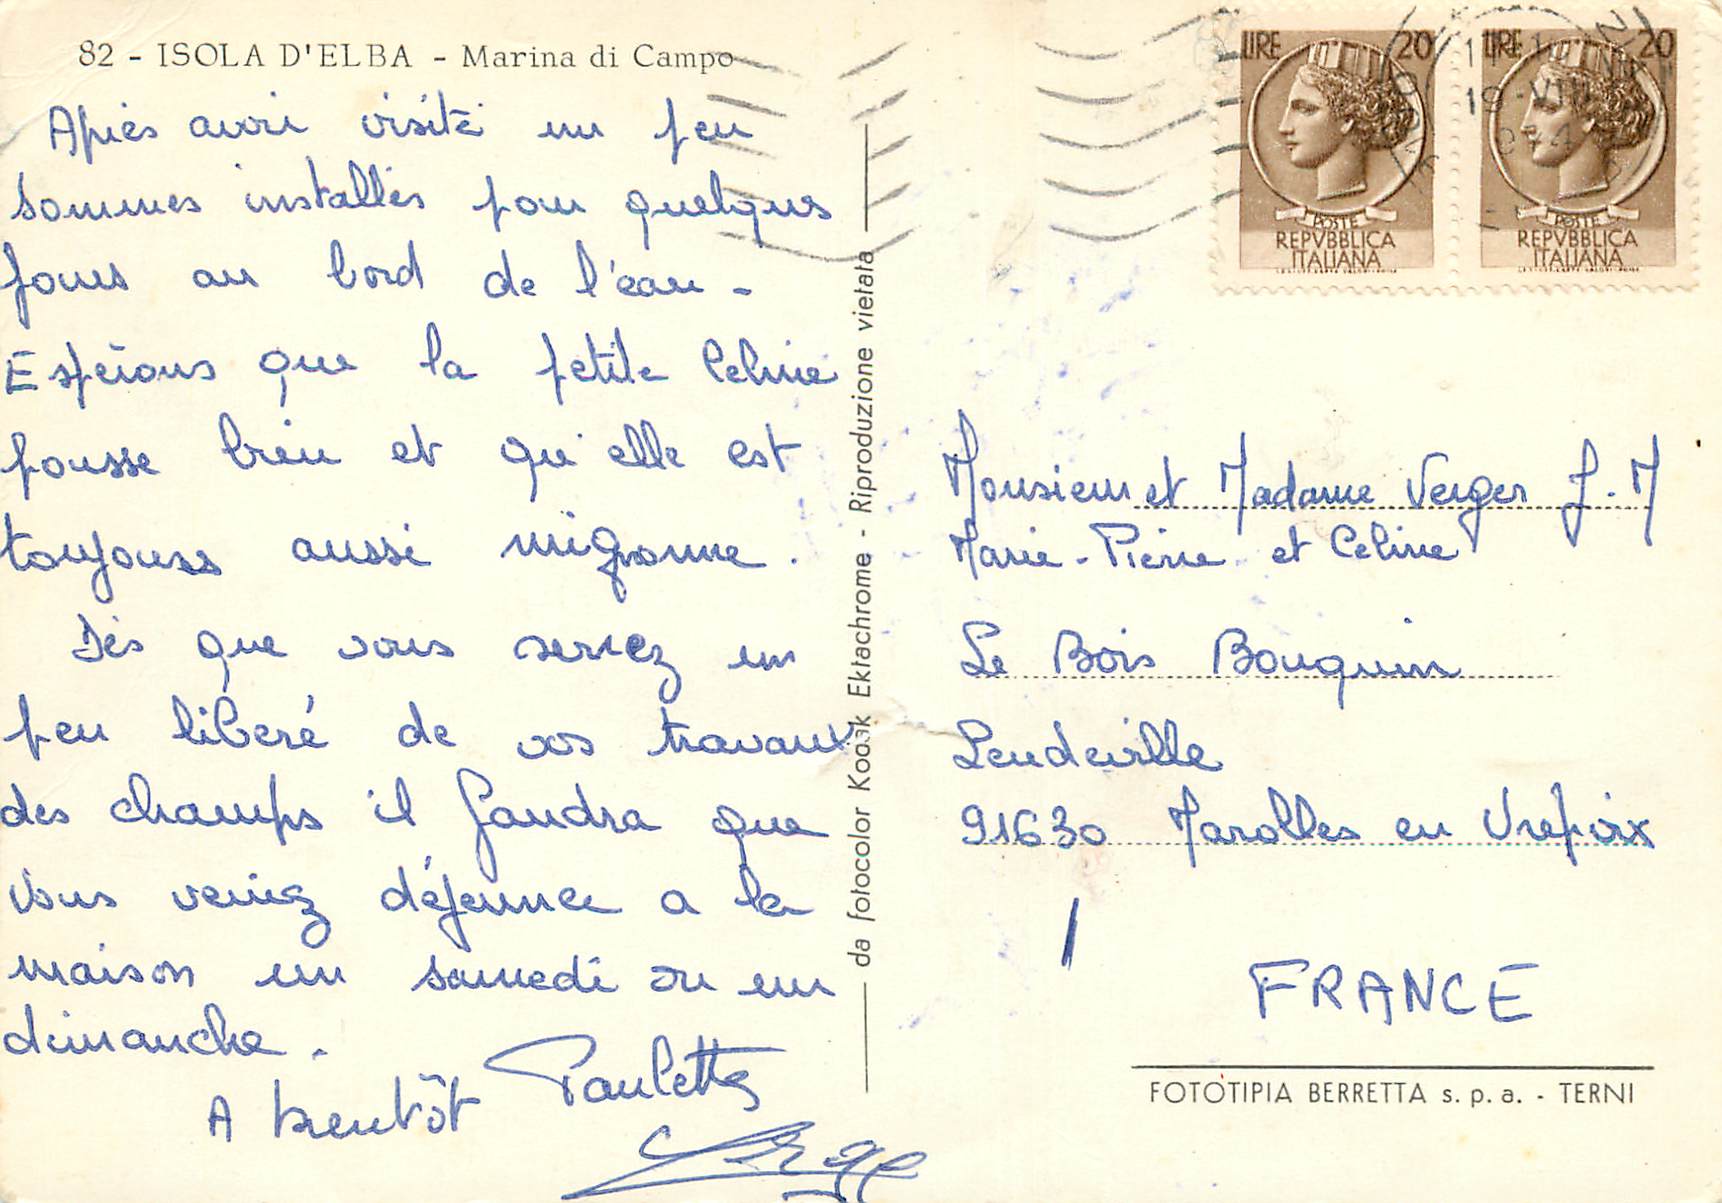 82 - ISOLA D'ELBA - Marina di Campo
Après avoir visité un peu
sommes installés pour quelques
jours au bord de l'eau -
Espérons que la petite Celine
pousse bien et qu'elle est
toujours aussi mignonne.
Dès que vous serrez un
peu liberé de vos travaux
des champs il faudra que
vous veniez déjeunner a la
maison un samedi ou un
dimanche.
A bientôt Paulette
Serge
da fotocolor Kodak Ektachrome - Riproduzione vietata
LIRE 20
POSTE
REPVBBLICA
ITALIANA
LIRE 20
POSTE
REPVBBLICA
ITALIANA
Monsieur et Madame Verger J.M
Marie-Pierre et Celine
Le Bois Bouquin
Leudeville
91630 Marolles en Urepoix
FRANCE
FOTOTIPIA BERRETTA s.p.a. - TERNI